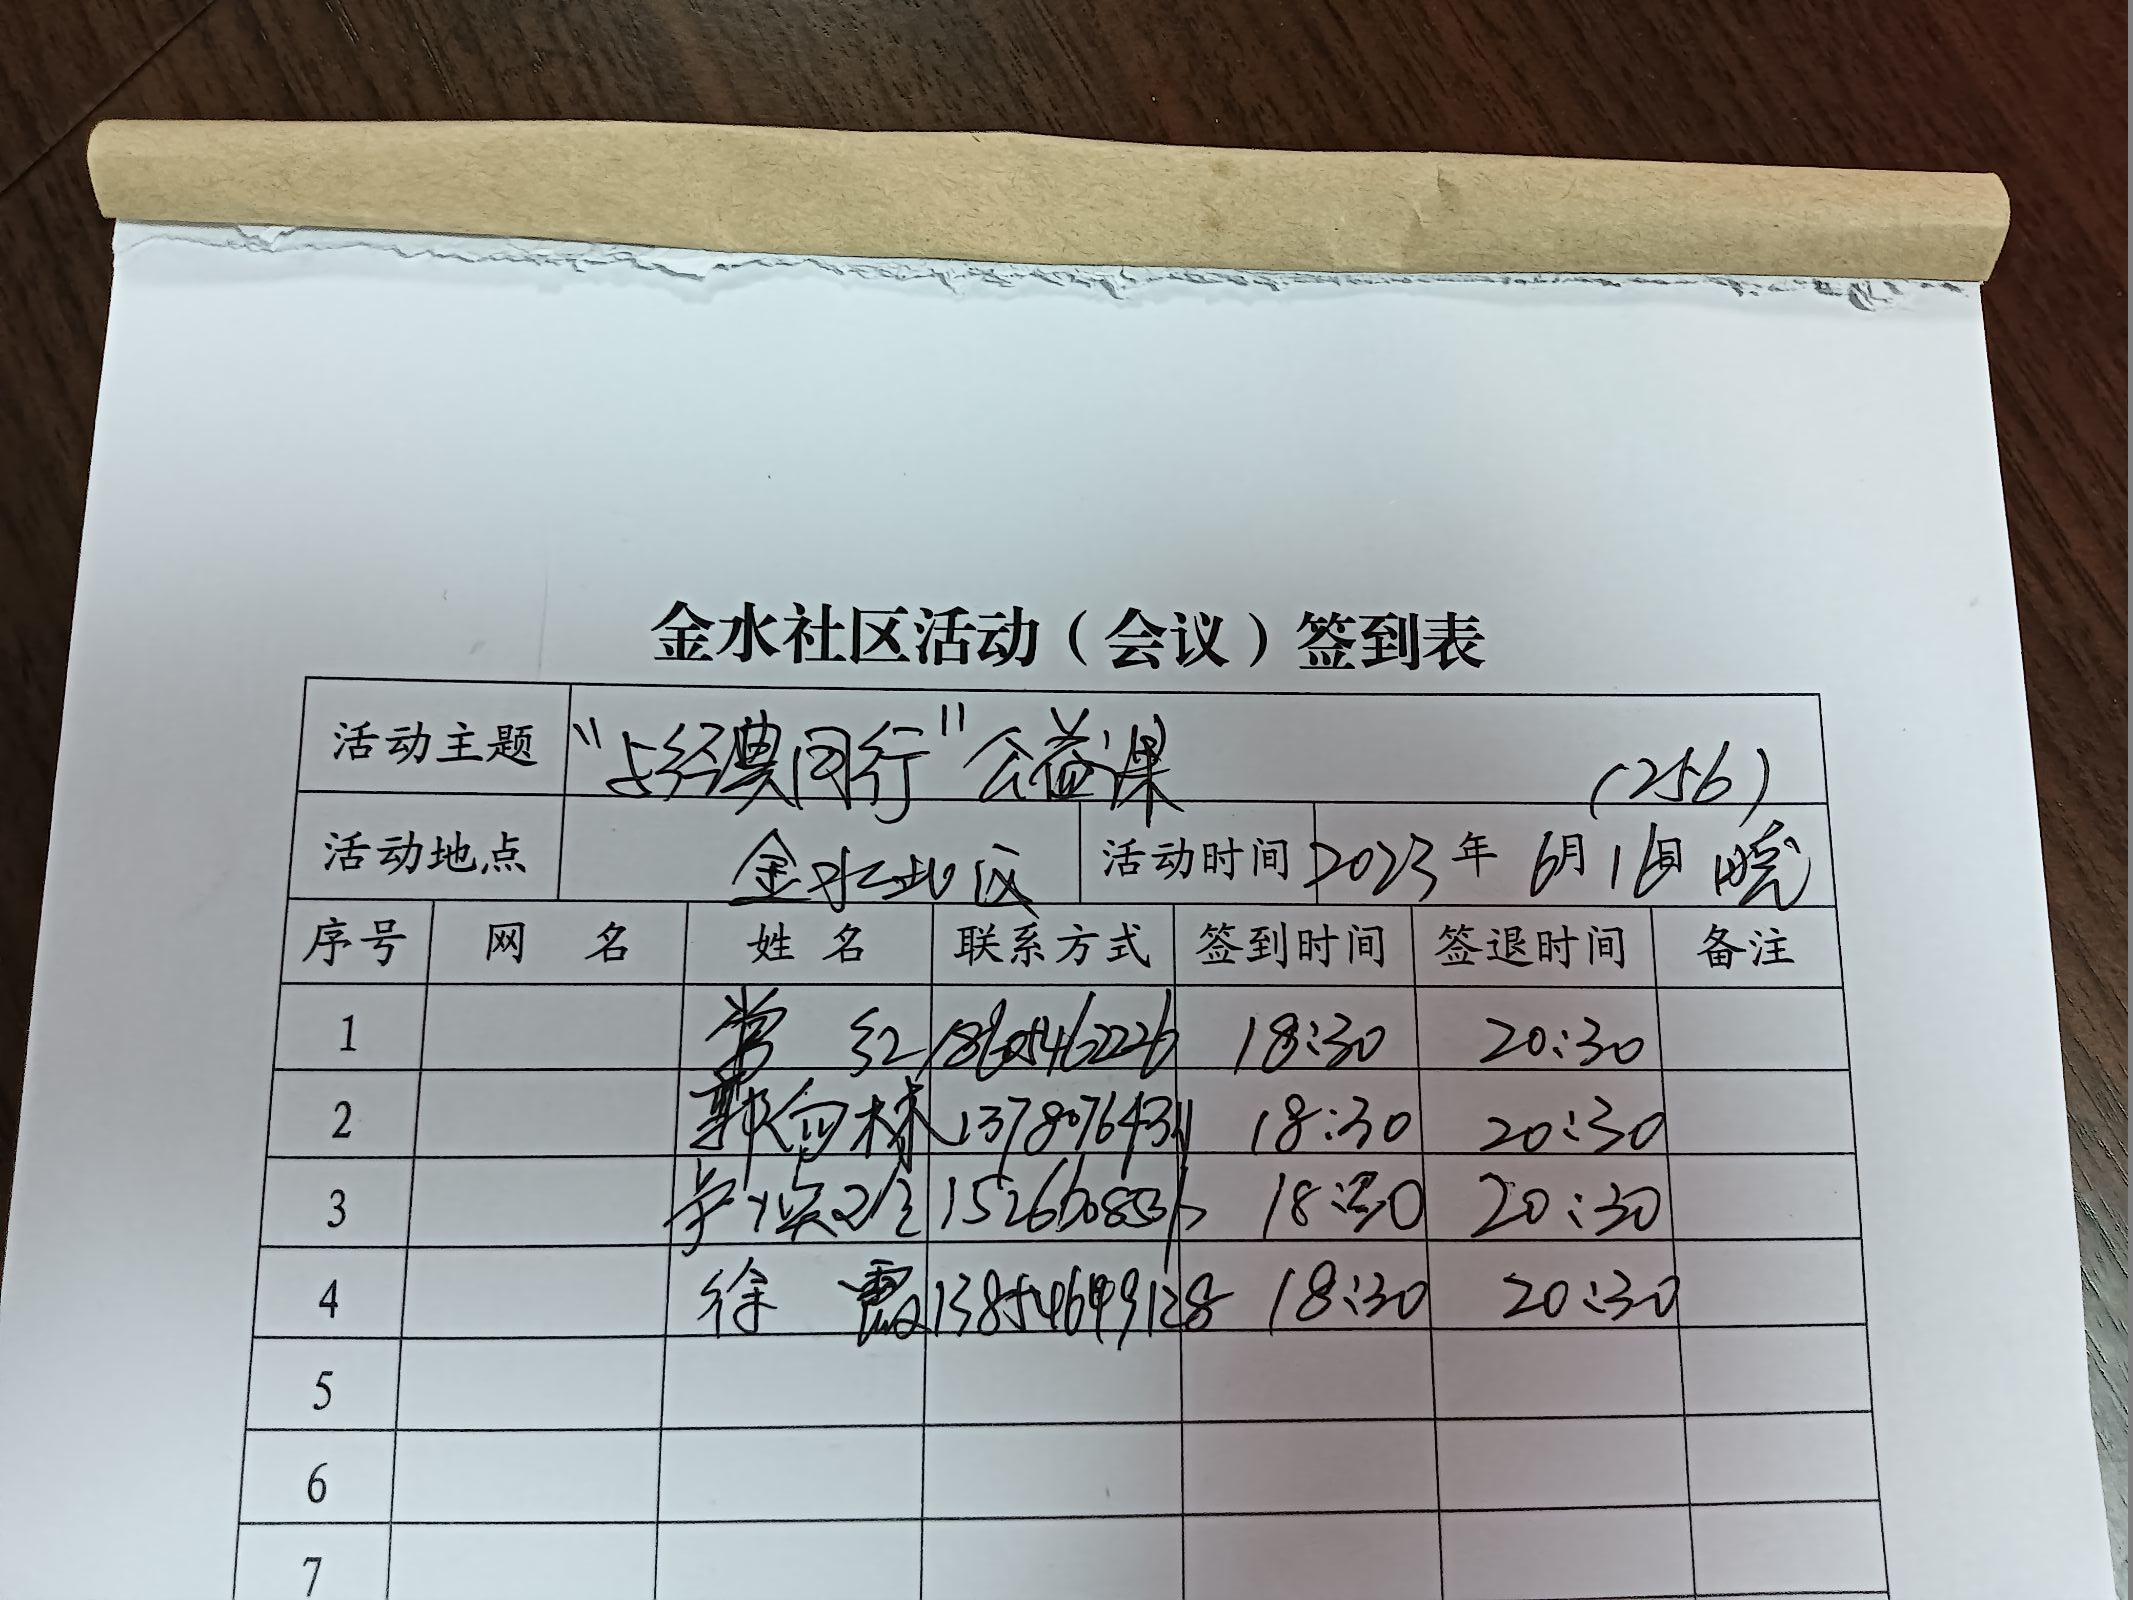 金水社区活动（会议）签到表
活动主题 “与经典同行”公益课 （256）
活动地点 金水社区 活动时间 2023年 6月16日 晚
序号 网 名 姓 名 联系方式 签到时间 签退时间 备注
1 常 红 18:30 20:30
2 郭向林 18:30 20:30
3 18:30 20:30
4 徐 霞 18:30 20:30
5
6
7